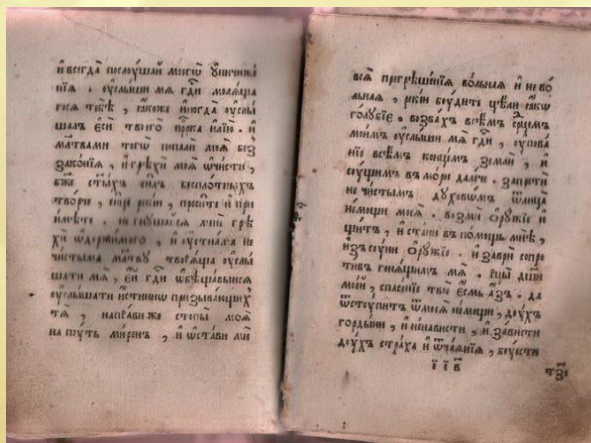 и всегда послоушаи моегѡ оуничиже
нїѧ . оуслыши мѧ гд҃и молѧща
госѧ тебѣ , ꙗкоже иногда оуслы
шалъ еси твоего прⷪ҇рка илїю . и
мл҃твами тогѡ попали моѧ без
законїѧ , и грѣхи моѧ ѡчисти ,
бж҃е ст҃ыхъ силъ бесплотныхъ
творче , рекїи , просите и прї
имете . не гнушаисѧ мене грѣ
хи ѡдержимаго , и оустнама не
чистыма мл҃тву творѧща оуслы
шати мѧ , еи гд҃и ѡбѣщавыисѧ
оуслышати истинною призывающих
тѧ , направи же стопы моѧ
на путь миренъ , и ѡстави ми
всѧ прегрѣшенїѧ вольнаѧ и нево
льнаѧ , рекїи боудите цѣли ꙗкѡ
голубїе . возвахъ всѣмъ срⷣцемъ
моимъ оуслыши мѧ гд҃и , оупова
нїе всѣмъ концемъ земли , и
сущимъ в мори далече . запрети
нечистымъ духовомъ ѿ лица
немощи моеѧ . возми оружїе и
щитъ , и стани въ помощь мнѣ ,
изъсуни оружїе . и заври сопро
тивъ гонѧщимъ мѧ . рцы дш҃и
моеи , спасенїе твое есмь азъ . да
ѿступитъ ѿ моеѧ немощи , духъ
гордыни , и ненависти , и зависти
духъ страха и ѿчаѧнїѧ ,